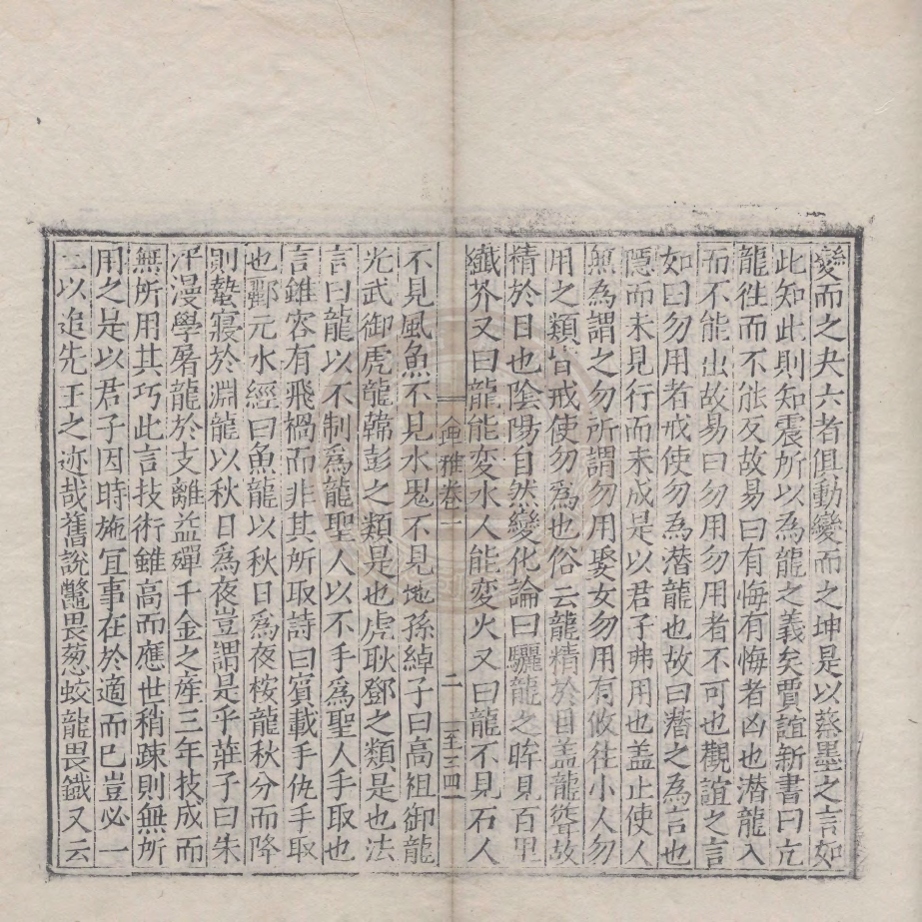 變而之夬六者俱動變而之坤是以蔡墨之言如
此知此則知震所以為龍之義矣賈誼新書曰亢
龍往而不能反故易曰有悔有悔者凶也潛龍入
而不能出故易曰勿用勿用者不可也觀誼之言
如曰勿用者戒使勿為潛龍也故曰潛之為言也
隱而未見行而未成是以君子弗用也盖止使人
無為謂之勿所謂勿用娶女勿用有攸往小人勿
用之類皆戒使勿為也俗云龍精於目盖龍聾故
精於目也隂陽自然變化論曰驪龍之眸見百里
纖芥又曰龍能変水人能変火又曰龍不見石人
埤雅卷一
二
至三四
不見風魚不見水鬼不見地孫綽子曰高祖御龍
光武御虎龍韓彭之類是也虎耿鄧之類是也法
言曰龍以不制爲龍聖人以不手爲聖人手取也
言錐容有飛禍而非其所取詩曰賓載手仇手取
也酈元水經曰魚龍以秋日爲夜桉龍秋分而降
則蟄寢於淵龍以秋日爲夜豈謂是乎莊子曰朱
泙漫學屠龍於支離益殫千金之産三年技成而
無所用其巧此言技術錐高而應世稍踈則無所
用之是以君子因時施宜事在於適而已豈必一
二以追先王之迹哉舊說鼈畏葱蛟龍畏鐵又云